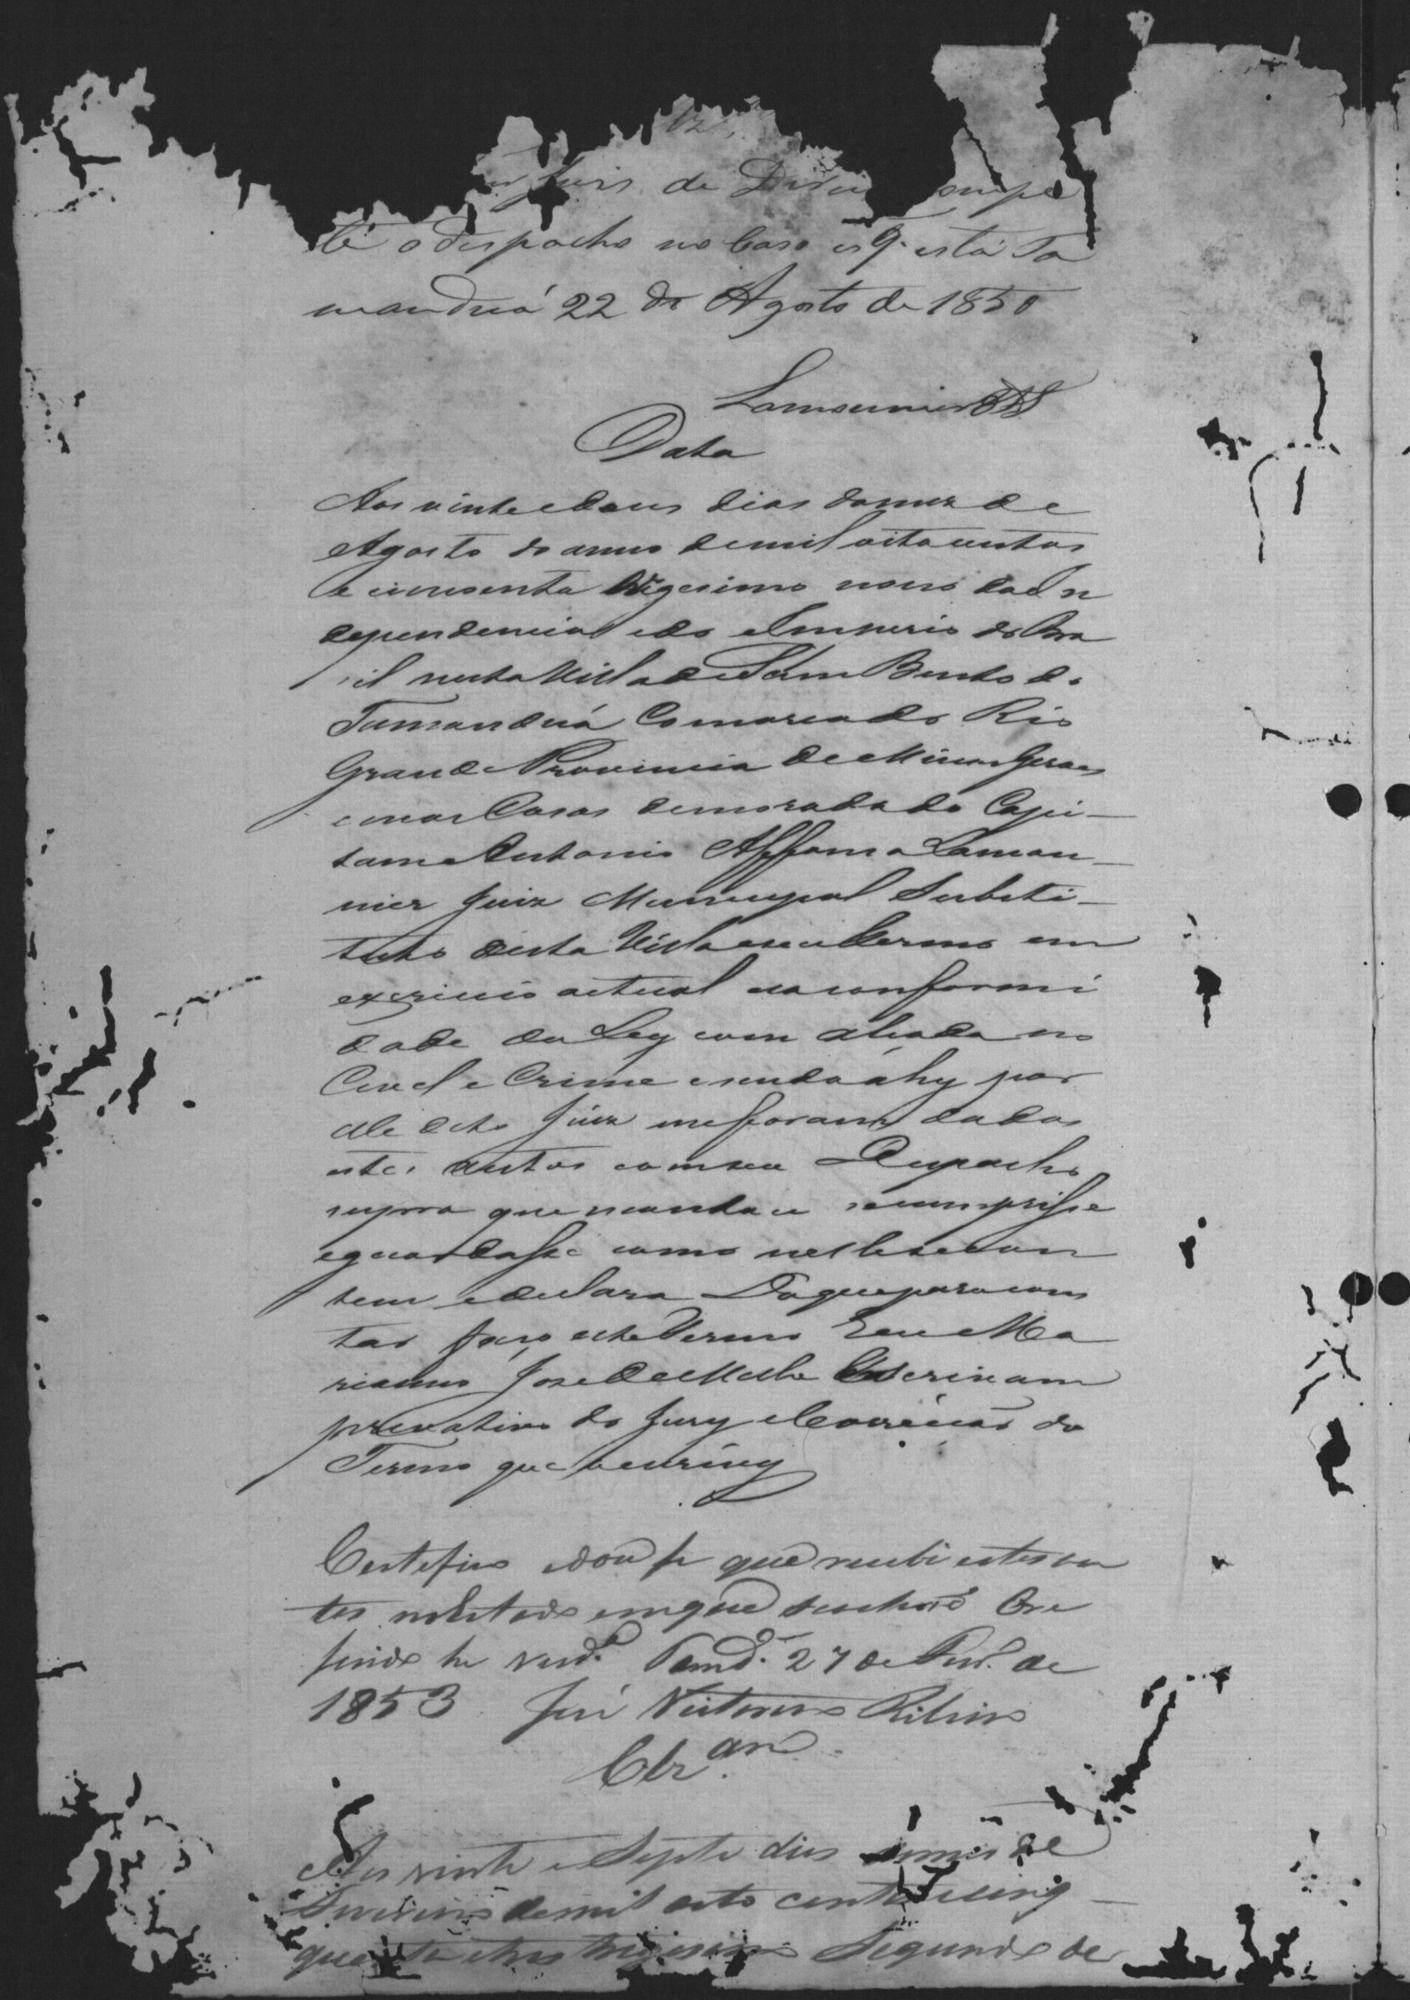 Juis de
o despacho no Caso q. está Ta
manduá 22 de Agosto de 1850
Lamounier
Data
Aos vinte e dous dias do mez de
Agosto do anno de mil oito centos
e cincoenta trigesimo nono da In
dependencia e do Imperio do Bra
sil nesta Villa de Sam Bento do
Tamanduá Comarca do Rio
Grande Provincia de Minas Geraes
e nas Casas de morada do Capi-
tam Antonio Affonso Lamou-
nier Juiz Municipal Substi-
tuto desta Villa e seu Termo em
exercicio actual na conformi
dade da Ley com alsada no
Civel e Crime e sendo ahy por
ele dito Juiz me foram dados
estes autos com seu Despacho
supra que manda se cumprisse
e guardasse como nelle se con
tem e declara Do que para cons
tar faço este Termo Eu Ma
rianno Jose de Mello Escrivam
privativo do Jury e Correicão do
Termo que escrevy
Certefico e dou fe que recebi estes au
tos no estado em que se acham o re
ferido he verd.e Tamd.á 27 de Fever.o de
1853 José Victorino Ribeiro
Aos vinte e Septe dias do mes de
Fevereiro de mil oito centos e cinq-
uenta e tres trigesimo Segundo de